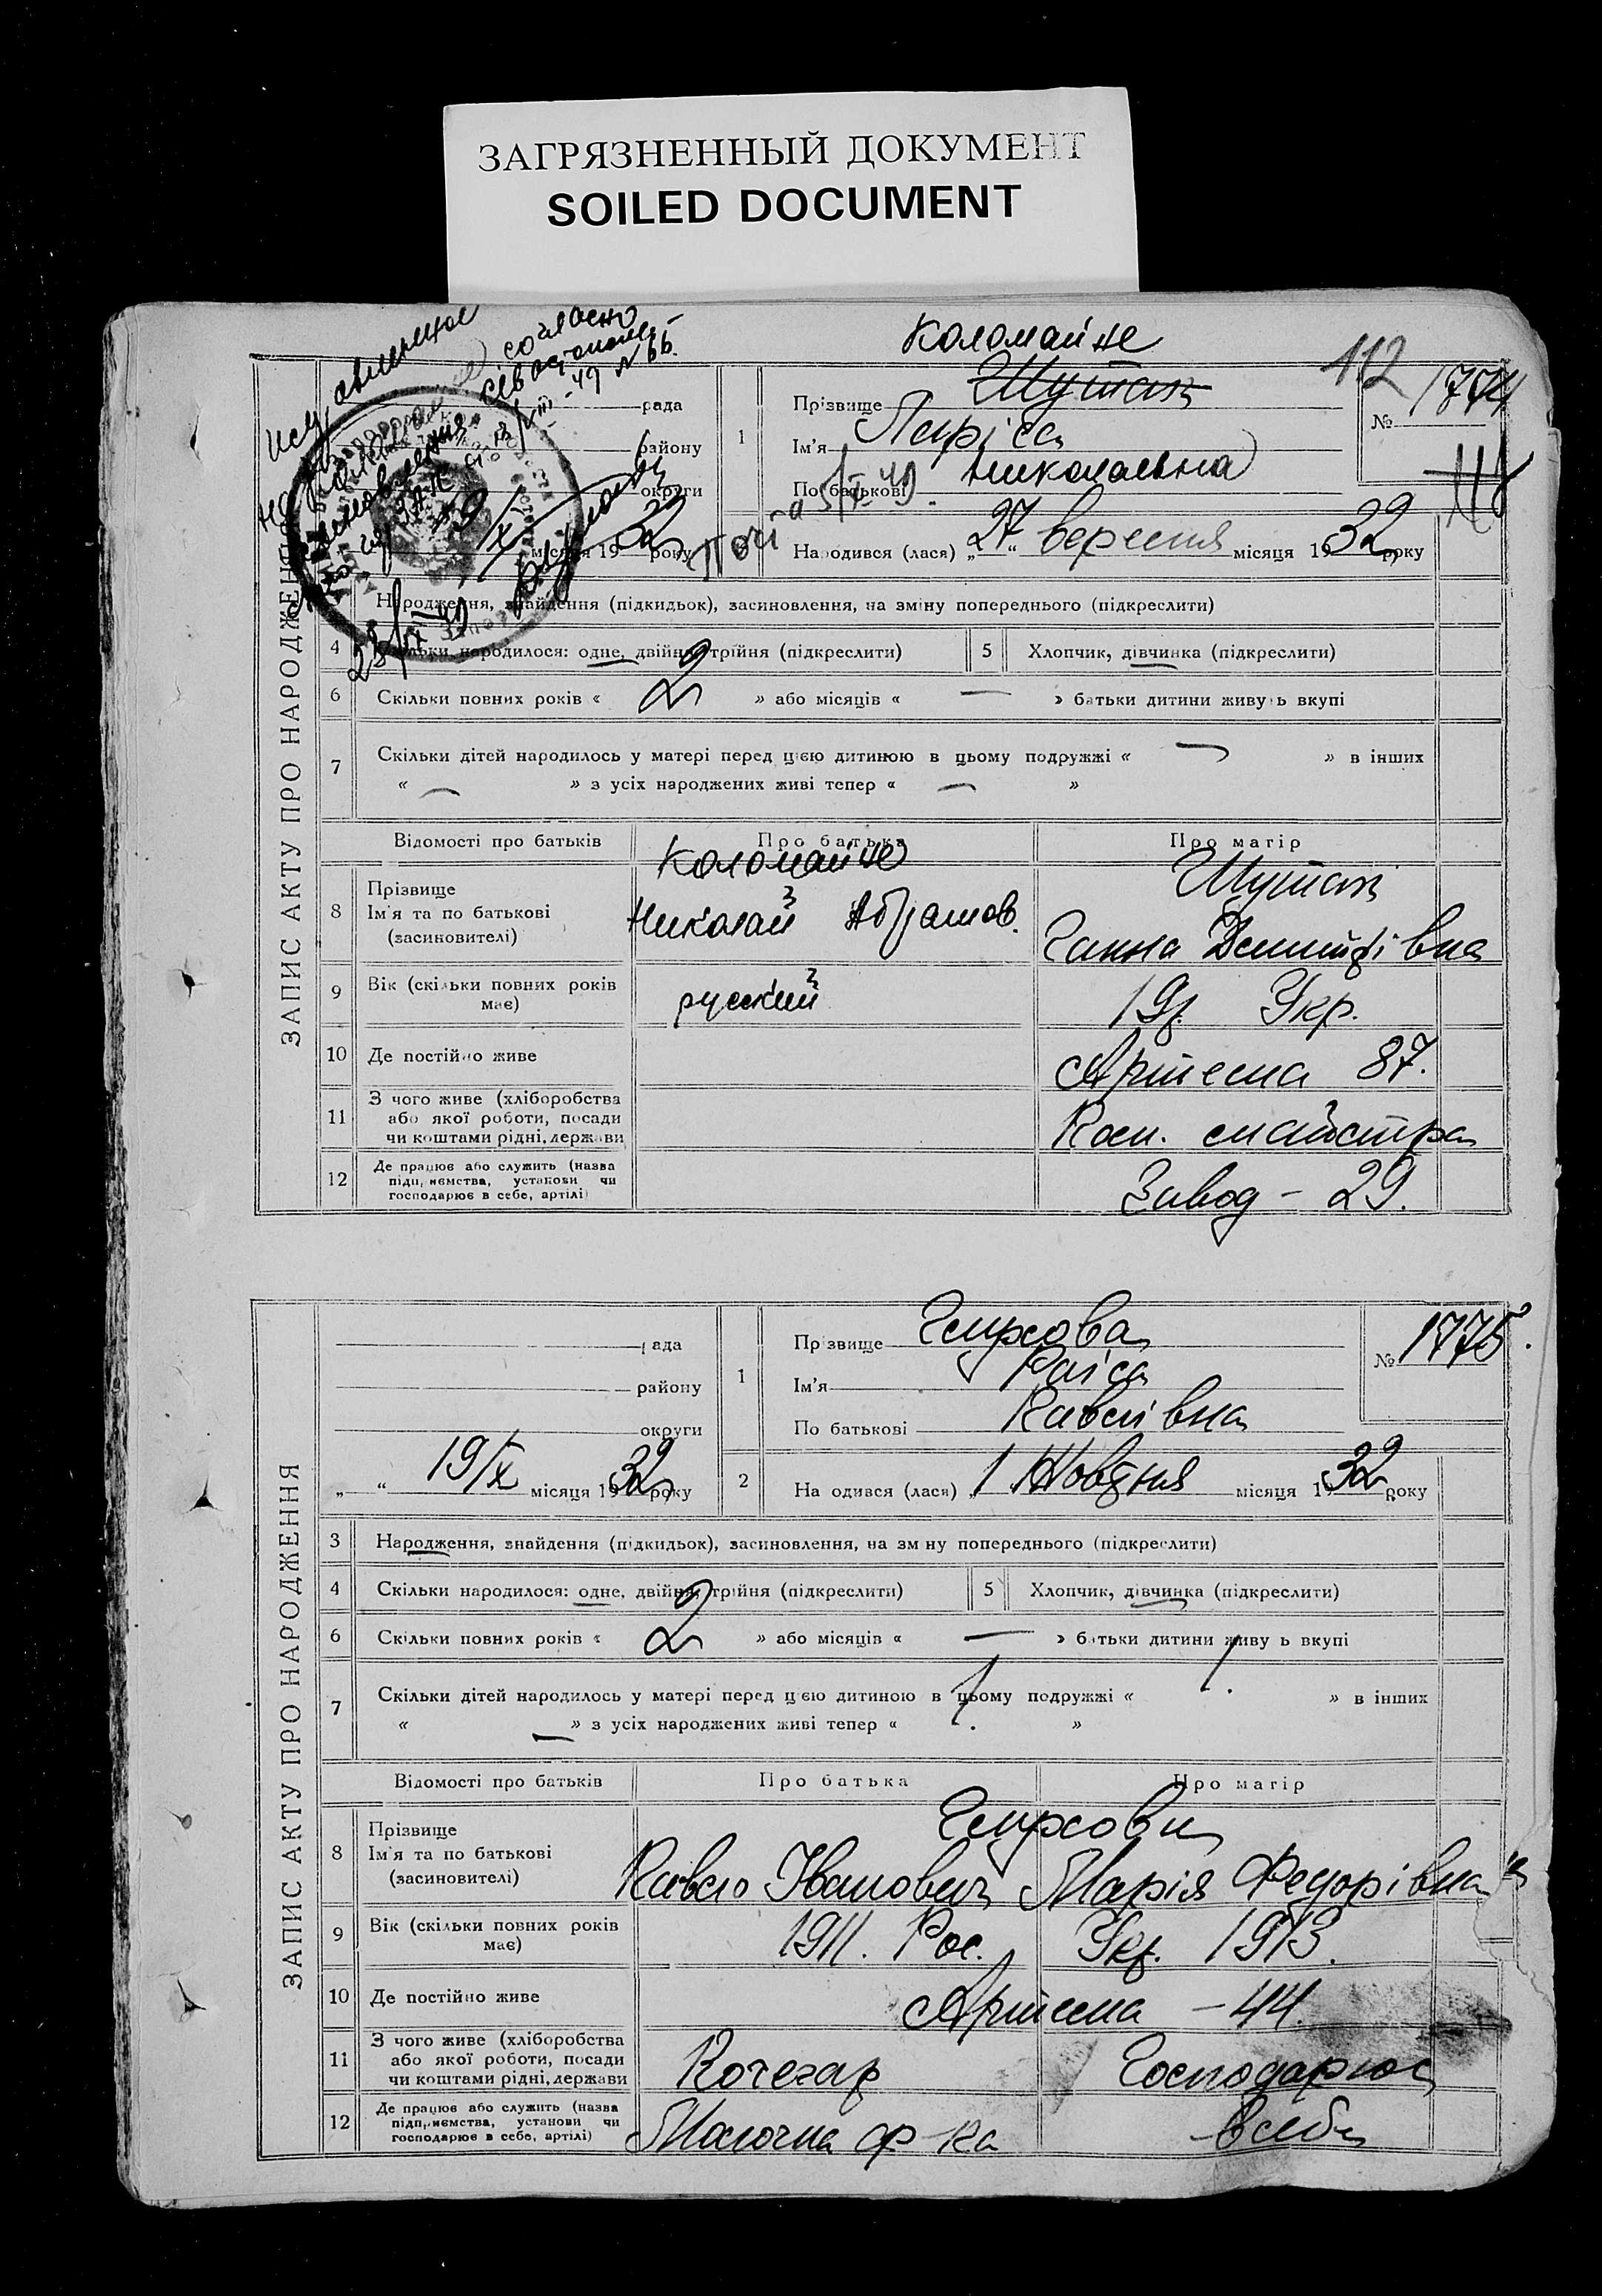 ЗАГРЯЗНЕННЫЙ ДОКУМЕНТ
SOILED DOCUMENT
согласно
Коломайце
112
рада
1
Прізвище Шутак
№ 1774
району
Ім'я Ларіса
округи
По батькові Николаевна
9/X місяця 1932 року
Народився (лася) „27“ вересня місяця 1932 року
ЗАПИС АКТУ ПРО НАРОДЖЕННЯ
Народження, знайдення (підкидьок), засиновлення, на зміну попереднього (підкреслити)
4 Скільки народилося: одне, двійня, трійня (підкреслити)
5 Хлопчик, дівчинка (підкреслити)
6 Скільки повних років « 2 » або місяців « — » батьки дитини живуть вкупі
7 Скільки дітей народилось у матері перед цією дитиною в цьому подружжі « — » в інших
« — » з усіх народжених живі тепер « — »
Відомості про батьків
Про батька
Про матір
8 Прізвище
Ім'я та по батькові
(засиновителі)
Коломайце
Николай Абрамов.
Шутак
Ганна Демитрівна
9 Вік (скільки повних років
має)
русский
19р. Укр.
10 Де постійно живе
Артема 87.
11 З чого живе (хліборобства
або якої роботи, посади
чи коштами рідні, держави
майстра
12 Де працює або служить (назва
підприємства, установи чи
господарює в себе, артілі)
Завод - 29.
рада
1
Прізвище
№ 1775.
району
Ім'я Раїса
округи
По батькові Павлівна
„ “ 19/X місяця 1932 року
2 Народився (лася) „1 Жовтня місяця 1932 року
ЗАПИС АКТУ ПРО НАРОДЖЕННЯ
3 Народження, знайдення (підкидьок), засиновлення, на зміну попереднього (підкреслити)
4 Скільки народилося: одне, двійня, трійня (підкреслити)
5 Хлопчик, дівчинка (підкреслити)
6 Скільки повних років « 2 » або місяців « — » батьки дитини живуть вкупі
7 Скільки дітей народилось у матері перед цією дитиною в цьому подружжі « 1. » в інших
« — » з усіх народжених живі тепер « 1. »
Відомості про батьків
Про батька
Про матір
8 Прізвище
Ім'я та по батькові
(засиновителі)
Павло Іванович
Марія Федорівна
9 Вік (скільки повних років
має)
1911. Рос.
Укр. 1913.
10 Де постійно живе
Артема - 44.
11 З чого живе (хліборобства
або якої роботи, посади
чи коштами рідні, держави
Кочегар
Господарює
12 Де працює або служить (назва
підприємства, установи чи
господарює в себе, артілі)
Молочна ф-ка
в себе